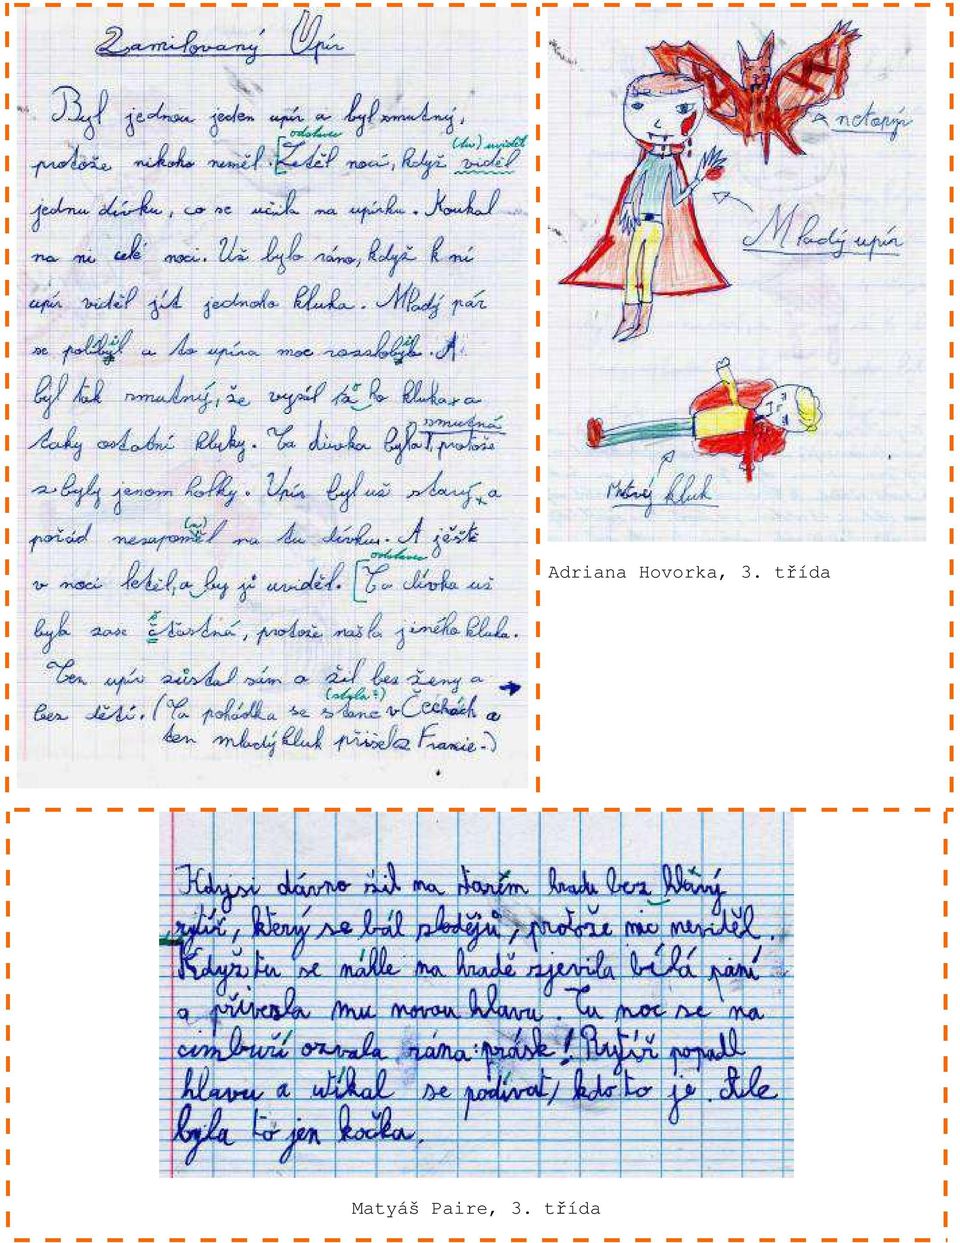 Zamilovaný Upír
Byl jednou jeden upír a byl smutný,
protože nikoho neměl. [Letěl nocí, když viděl
odstavec
(tu) uviděl
jednu dívku, co se učila na upírku. Koukal
na ni celé noci. Už bylo ráno, když k ní
upír viděl jít jednoho kluka. Mladý pár
se políbyl a to upíra moc rozzlobylo. A
byl tak smutný, že vysál toho kluka a
taky ostatní kluky. Ta dívka byla smutná, protože
zbyly jenom holky. Upír byl už starý a
pořád nezapoměl na tu dívku. A ještě
(ně)
odstavec
v noci letěl, a by ji uviděl. [Ta dívka už
byla zase šťastná, protože našla jiného kluka.
Ten upír zůstal sám a žil bez ženy a
bez dětí. (Ta pohádka se stane v Čechách a
(stala?)
ten mladý kluk přišel z Francie.)
netopýr
Mladý upír
Mrtvý kluk
Adriana Hovorka, 3. třída
Kdysi dávno žil na starém hradu bez hlavý
rytíř, který se bál zlodějů, protože nic neviděl.
Když tu se náhle na hradě zjevila bílá paní
a přivezla mu novou hlavu. Tu noc se na
cimbuří ozvala rána: prásk! Rytíř popadl
hlavu a utíkal se podívat, kdo to je. Ale
byla to jen kočka.
Matyáš Paire, 3. třída